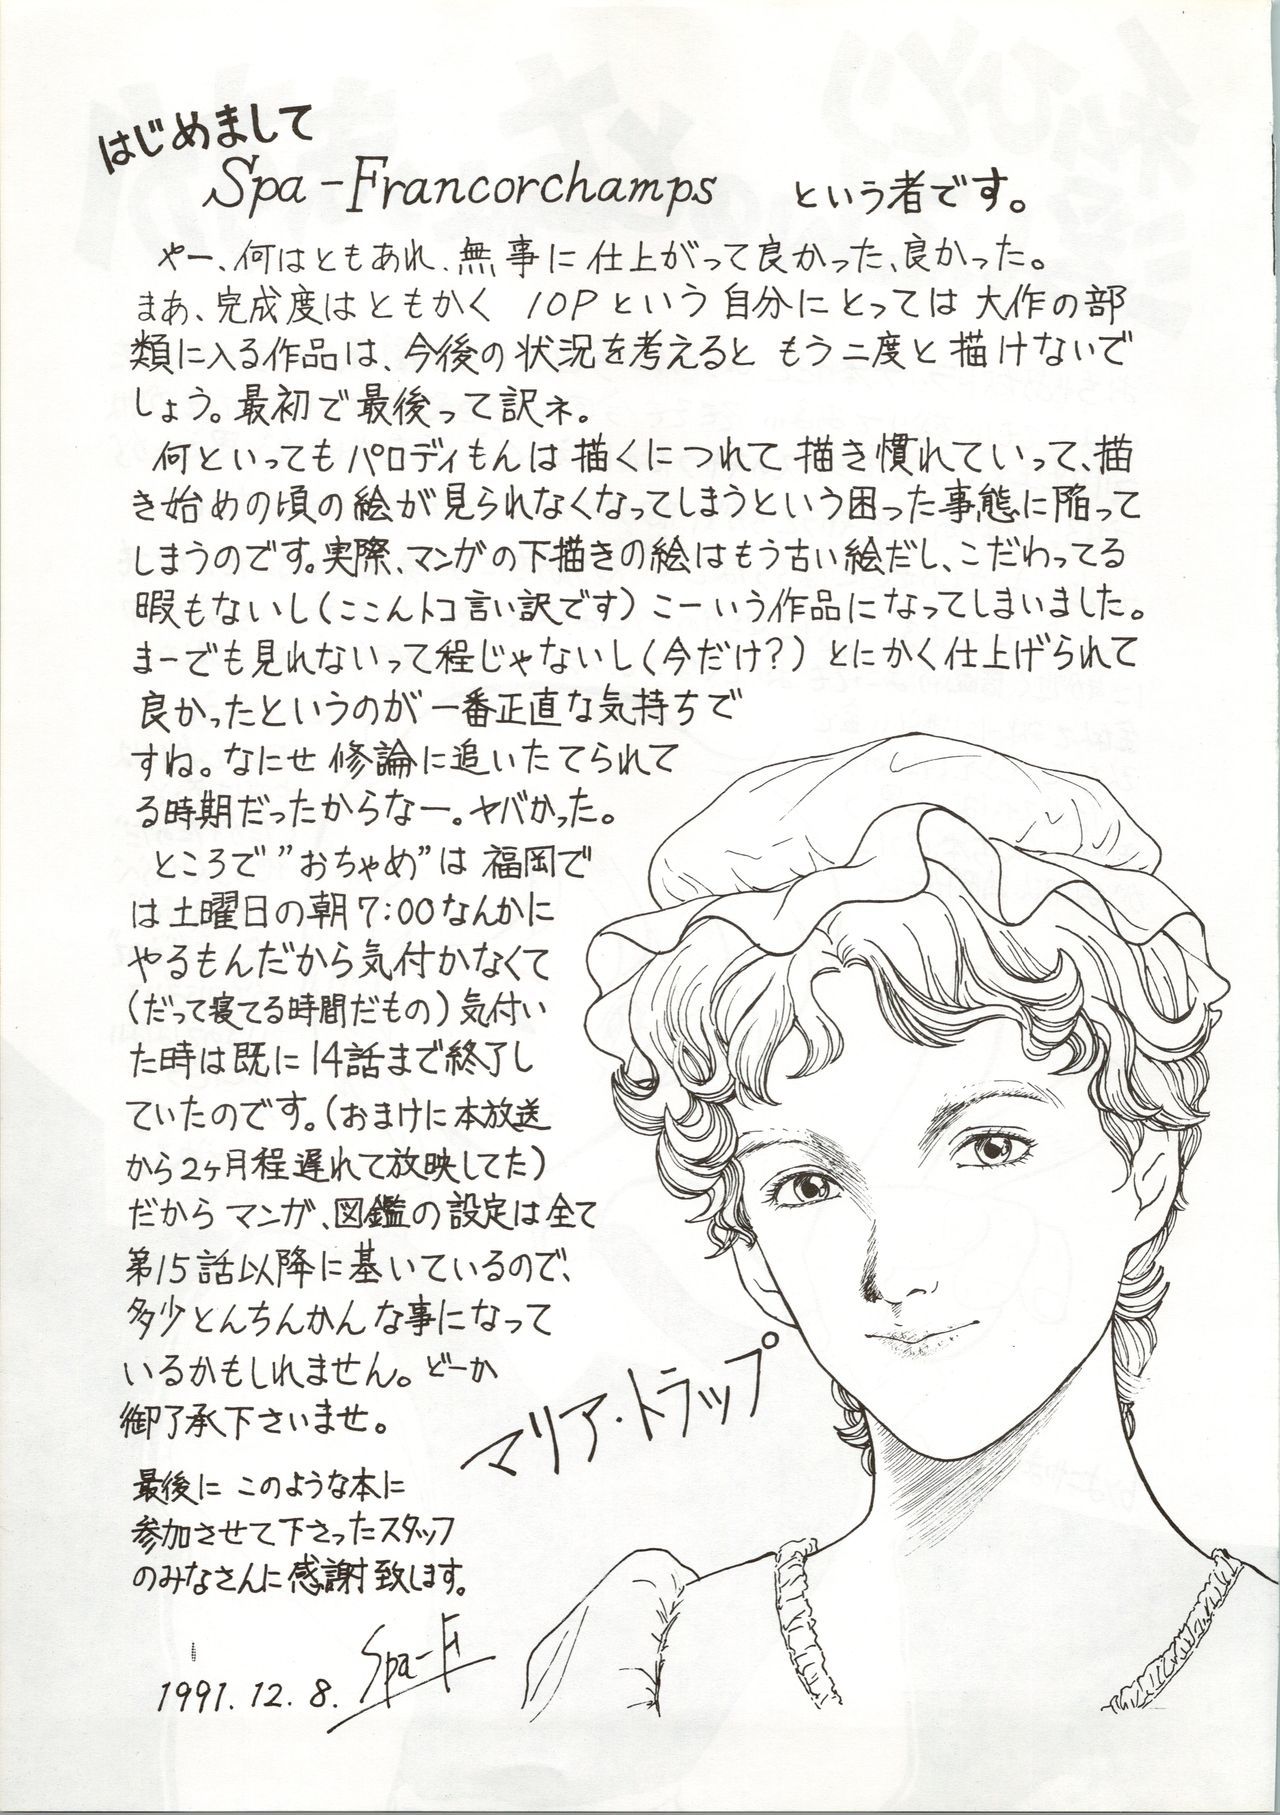 はじめまして
Spa-Francorchamps という者です。
やー、何はともあれ、無事に仕上がって良かった、良かった。
まあ、完成度はともかく 10Pという自分にとっては大作の部
類に入る作品は、今後の状況を考えると もう二度と描けないで
しょう。最初で最後って訳ネ。
何といってもパロディもんは描くにつれて描き慣れていって、描
き始めの頃の絵が見られなくなってしまうという困った事態に陥って
しまうのです。実際、マンガの下描きの絵はもう古い絵だし、こだわってる
暇もないし(ここんトコ言い訳です)こーいう作品になってしまいました。
まーでも見れないって程じゃないし(今だけ?)とにかく仕上げられて
良かったというのが一番正直な気持ちで
すね。なにせ修論に追いたてられて
る時期だったからなー。ヤバかった。
ところで”おちゃめ”は福岡で
は土曜日の朝7:00なんかに
やるもんだから気付かなくて
(だって寝てる時間だもの)気付い
た時は既に14話まで終了し
ていたのです。(おまけに本放送
から2ヶ月程遅れて放映してた)
だからマンガ、図鑑の設定は全て
第15話以降に基いているので、
多少とんちんかんな事になって
いるかもしれません。どーか
御了承下さいませ。
マリア・トラップ
最後に このような本に
参加させて下さったスタッフ
のみなさんに感謝致します。
1991.12.8. Spa-F